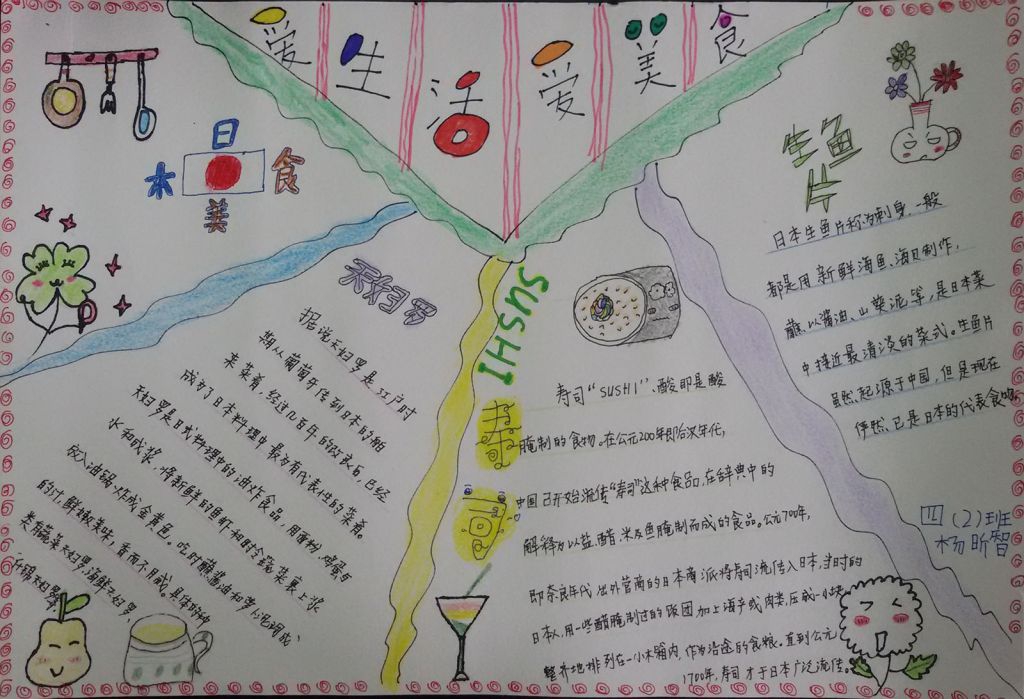 爱生活爱美食
日本美食
天妇罗
据说天妇罗是江户时
期从葡萄牙传到日本的舶
来菜肴,经过几百年的改良后,已经
成为了日本料理中最为有代表性的菜肴。
天妇罗是日式料理中的油炸食品,用面粉、鸡蛋与
水和成浆,将新鲜的鱼虾和时令蔬菜裹上浆
放入油锅炸成金黄色。吃时蘸酱油和萝卜泥调成
的汁,鲜嫩美味,香而不腻。具体的种
类有蔬菜天妇罗,海鲜天妇罗,
什锦天妇罗
SUSHI
寿司
寿司“SUSHI”、酸即是酸
腌制的食物。在公元200年即后汉年代,
中国已开始流传“寿司”这种食品,在辞典中的
解释为以盐、醋、米及鱼腌制而成的食品。公元700年,
即奈良年代 出外营商的日本商派将寿司流传入日本,当时的
日本人,用一些醋腌制过的饭团加上海产或肉类,压成一小块,
整齐地排列在一小木箱内,作为沿途的食粮。直到公元
1700年,寿司才于日本广泛流传。
生鱼片
日本生鱼片称为刺身,一般
都是用新鲜海鱼、海贝制作,
蘸以酱油、山葵泥等,是日本菜
中接近最清淡的菜式。生鱼片
虽然起源于中国,但是现在
俨然已是日本的代表食物
四(2)班
杨昕智